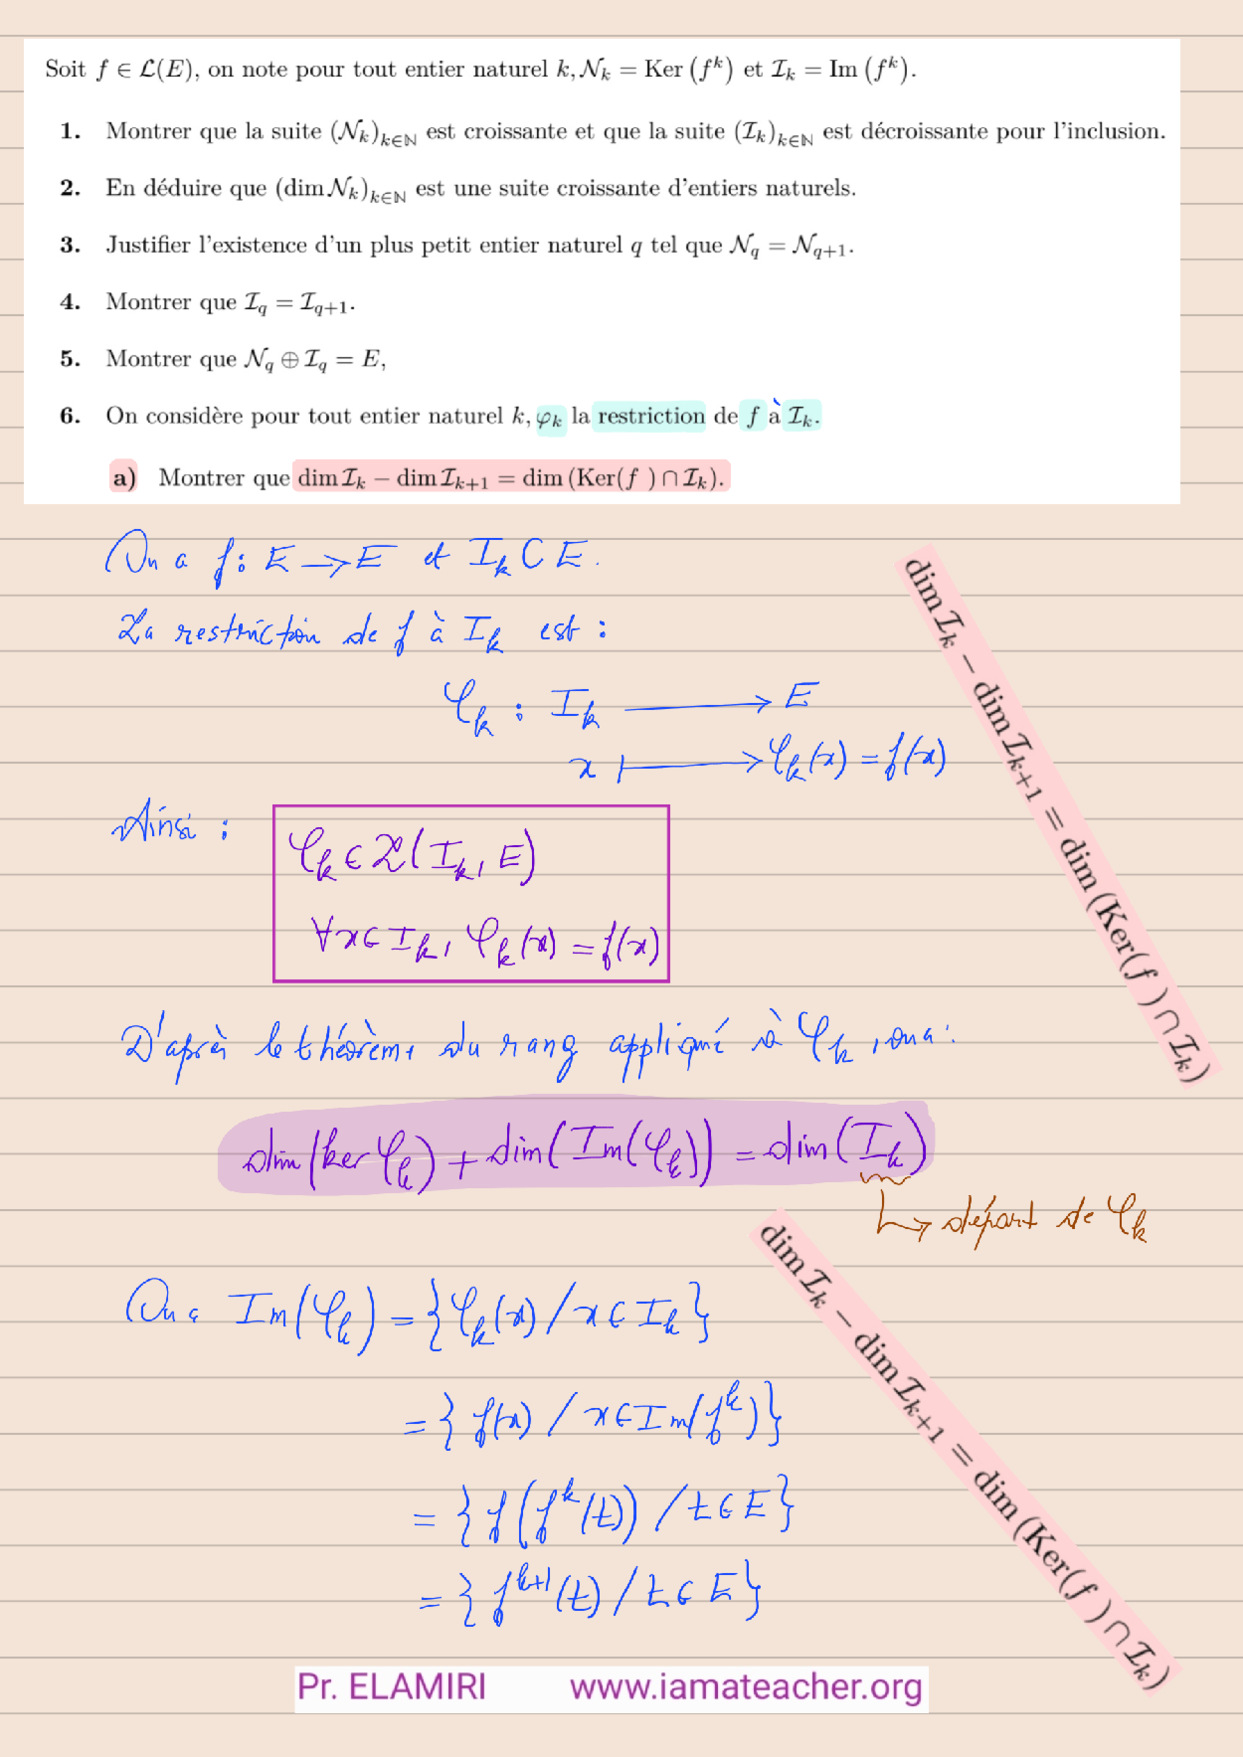 Soit f ∈ 𝓛(E), on note pour tout entier naturel k, 𝒩ₖ = Ker (fᵏ) et ℐₖ = Im (fᵏ).
1. Montrer que la suite (𝒩ₖ)ₖ∈ℕ est croissante et que la suite (ℐₖ)ₖ∈ℕ est décroissante pour l'inclusion.
2. En déduire que (dim 𝒩ₖ)ₖ∈ℕ est une suite croissante d'entiers naturels.
3. Justifier l'existence d'un plus petit entier naturel q tel que 𝒩_q = 𝒩_{q+1}.
4. Montrer que ℐ_q = ℐ_{q+1}.
5. Montrer que 𝒩_q ⊕ ℐ_q = E,
6. On considère pour tout entier naturel k, φₖ la restriction de f à ℐₖ.
a) Montrer que dim ℐₖ − dim ℐₖ₊₁ = dim (Ker(f ) ∩ ℐₖ).
On a f : E → E et Iₖ ⊂ E.
La restriction de f à Iₖ est :
φₖ : Iₖ ⟶ E
x ⟼ φₖ(x) = f(x)
dim ℐₖ − dim ℐₖ₊₁ = dim (Ker(f ) ∩ ℐₖ)
Ainsi :
φₖ ∈ 𝓛(Iₖ, E)
∀x ∈ Iₖ, φₖ(x) = f(x)
D'après le théorème du rang appliqué à φₖ, on a :
dim(ker φₖ) + dim(Im(φₖ)) = dim(Iₖ)
↳ départ de φₖ
dim ℐₖ − dim ℐₖ₊₁ = dim (Ker(f ) ∩ ℐₖ)
On a Im(φₖ) = {φₖ(x) / x ∈ Iₖ}
= { f(x) / x ∈ Im(fᵏ)}
= { f(fᵏ(t)) / t ∈ E}
= { fᵏ⁺¹(t) / t ∈ E}
Pr. ELAMIRI www.iamateacher.org